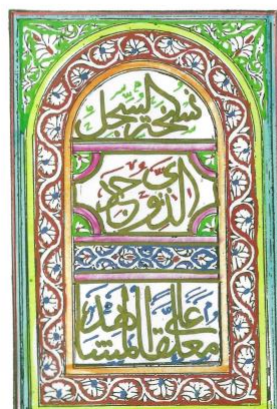 نسخة السجل
الذي وجد
معلقا على المشاهد